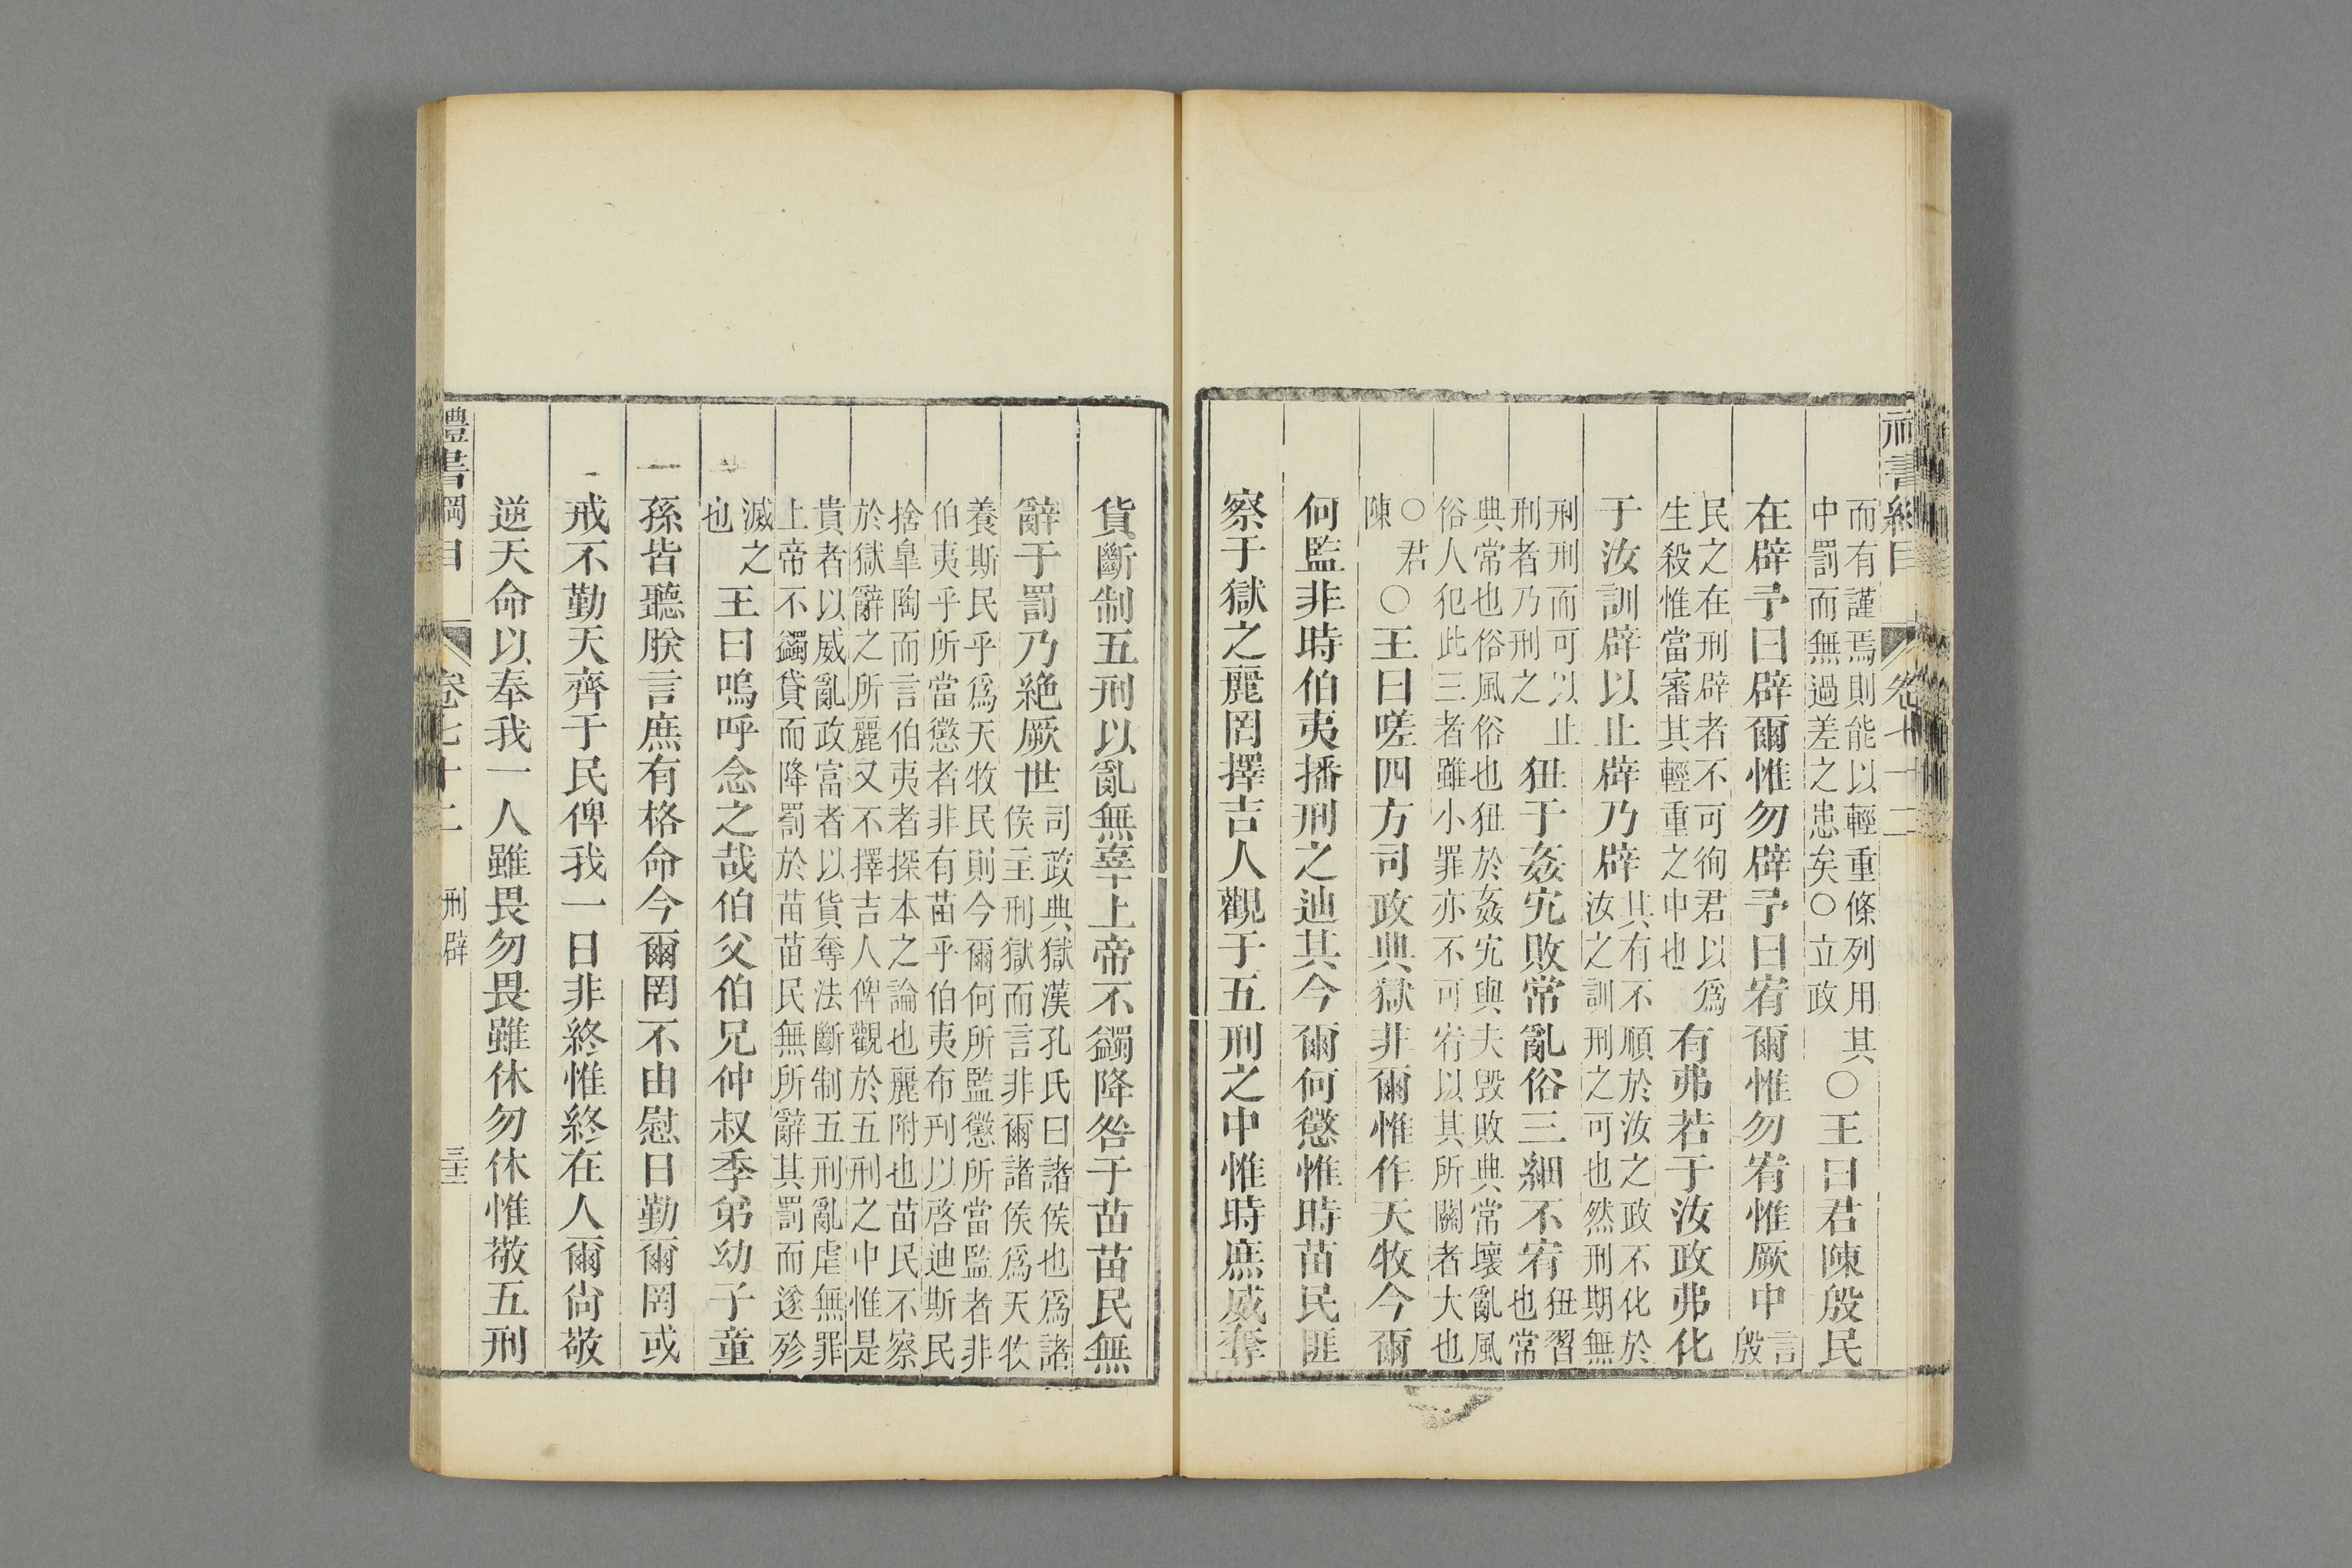 禮書綱目 卷七十二
而有謹焉則能以輕重條列用其
中罰而無過差之患矣○立政
○王曰君陳殷民
在辟予曰辟爾惟勿辟予曰宥爾惟勿宥惟厥中
言
殷
民之在刑辟者不可徇君以爲
生殺惟當審其輕重之中也
有弗若于汝政弗化
于汝訓辟以止辟乃辟
其有不順於汝之政不化於
汝之訓刑之可也然刑期無
刑刑而可以止
刑者乃刑之
狃于姦宄敗常亂俗三細不宥
狃習
也常
典常也俗風俗也狃於姦宄與夫毀敗典常壞亂風
俗人犯此三者雖小罪亦不可宥以其所關者大也
○君
陳
○王曰嗟四方司政典獄非爾惟作天牧今爾
何監非時伯夷播刑之迪其今爾何懲惟時苗民匪
察于獄之麗罔擇吉人觀于五刑之中惟時庶威奪
貨斷制五刑以亂無辜上帝不蠲降咎于苗苗民無
辭于罰乃絕厥世
司政典獄漢孔氏曰諸侯也爲諸
侯主刑獄而言非爾諸侯爲天牧
養斯民乎爲天牧民則今爾何所監懲所當監者非
伯夷乎所當懲者非有苗乎伯夷布刑以啓迪斯民
捨臯陶而言伯夷者探本之論也麗附也苗民不察
於獄辭之所麗又不擇吉人俾觀於五刑之中惟是
貴者以威亂政富者以貨奪法斷制五刑亂虐無罪
上帝不蠲貸而降罰於苗苗民無所辭其罰而遂殄
滅之
也
王曰嗚呼念之哉伯父伯兄仲叔季弟幼子童
孫皆聽朕言庶有格命今爾罔不由慰日勤爾罔或
戒不勤天齊于民俾我一日非終惟終在人爾尚敬
逆天命以奉我一人雖畏勿畏雖休勿休惟敬五刑
禮書綱目 卷七十二 刑辟 三十二